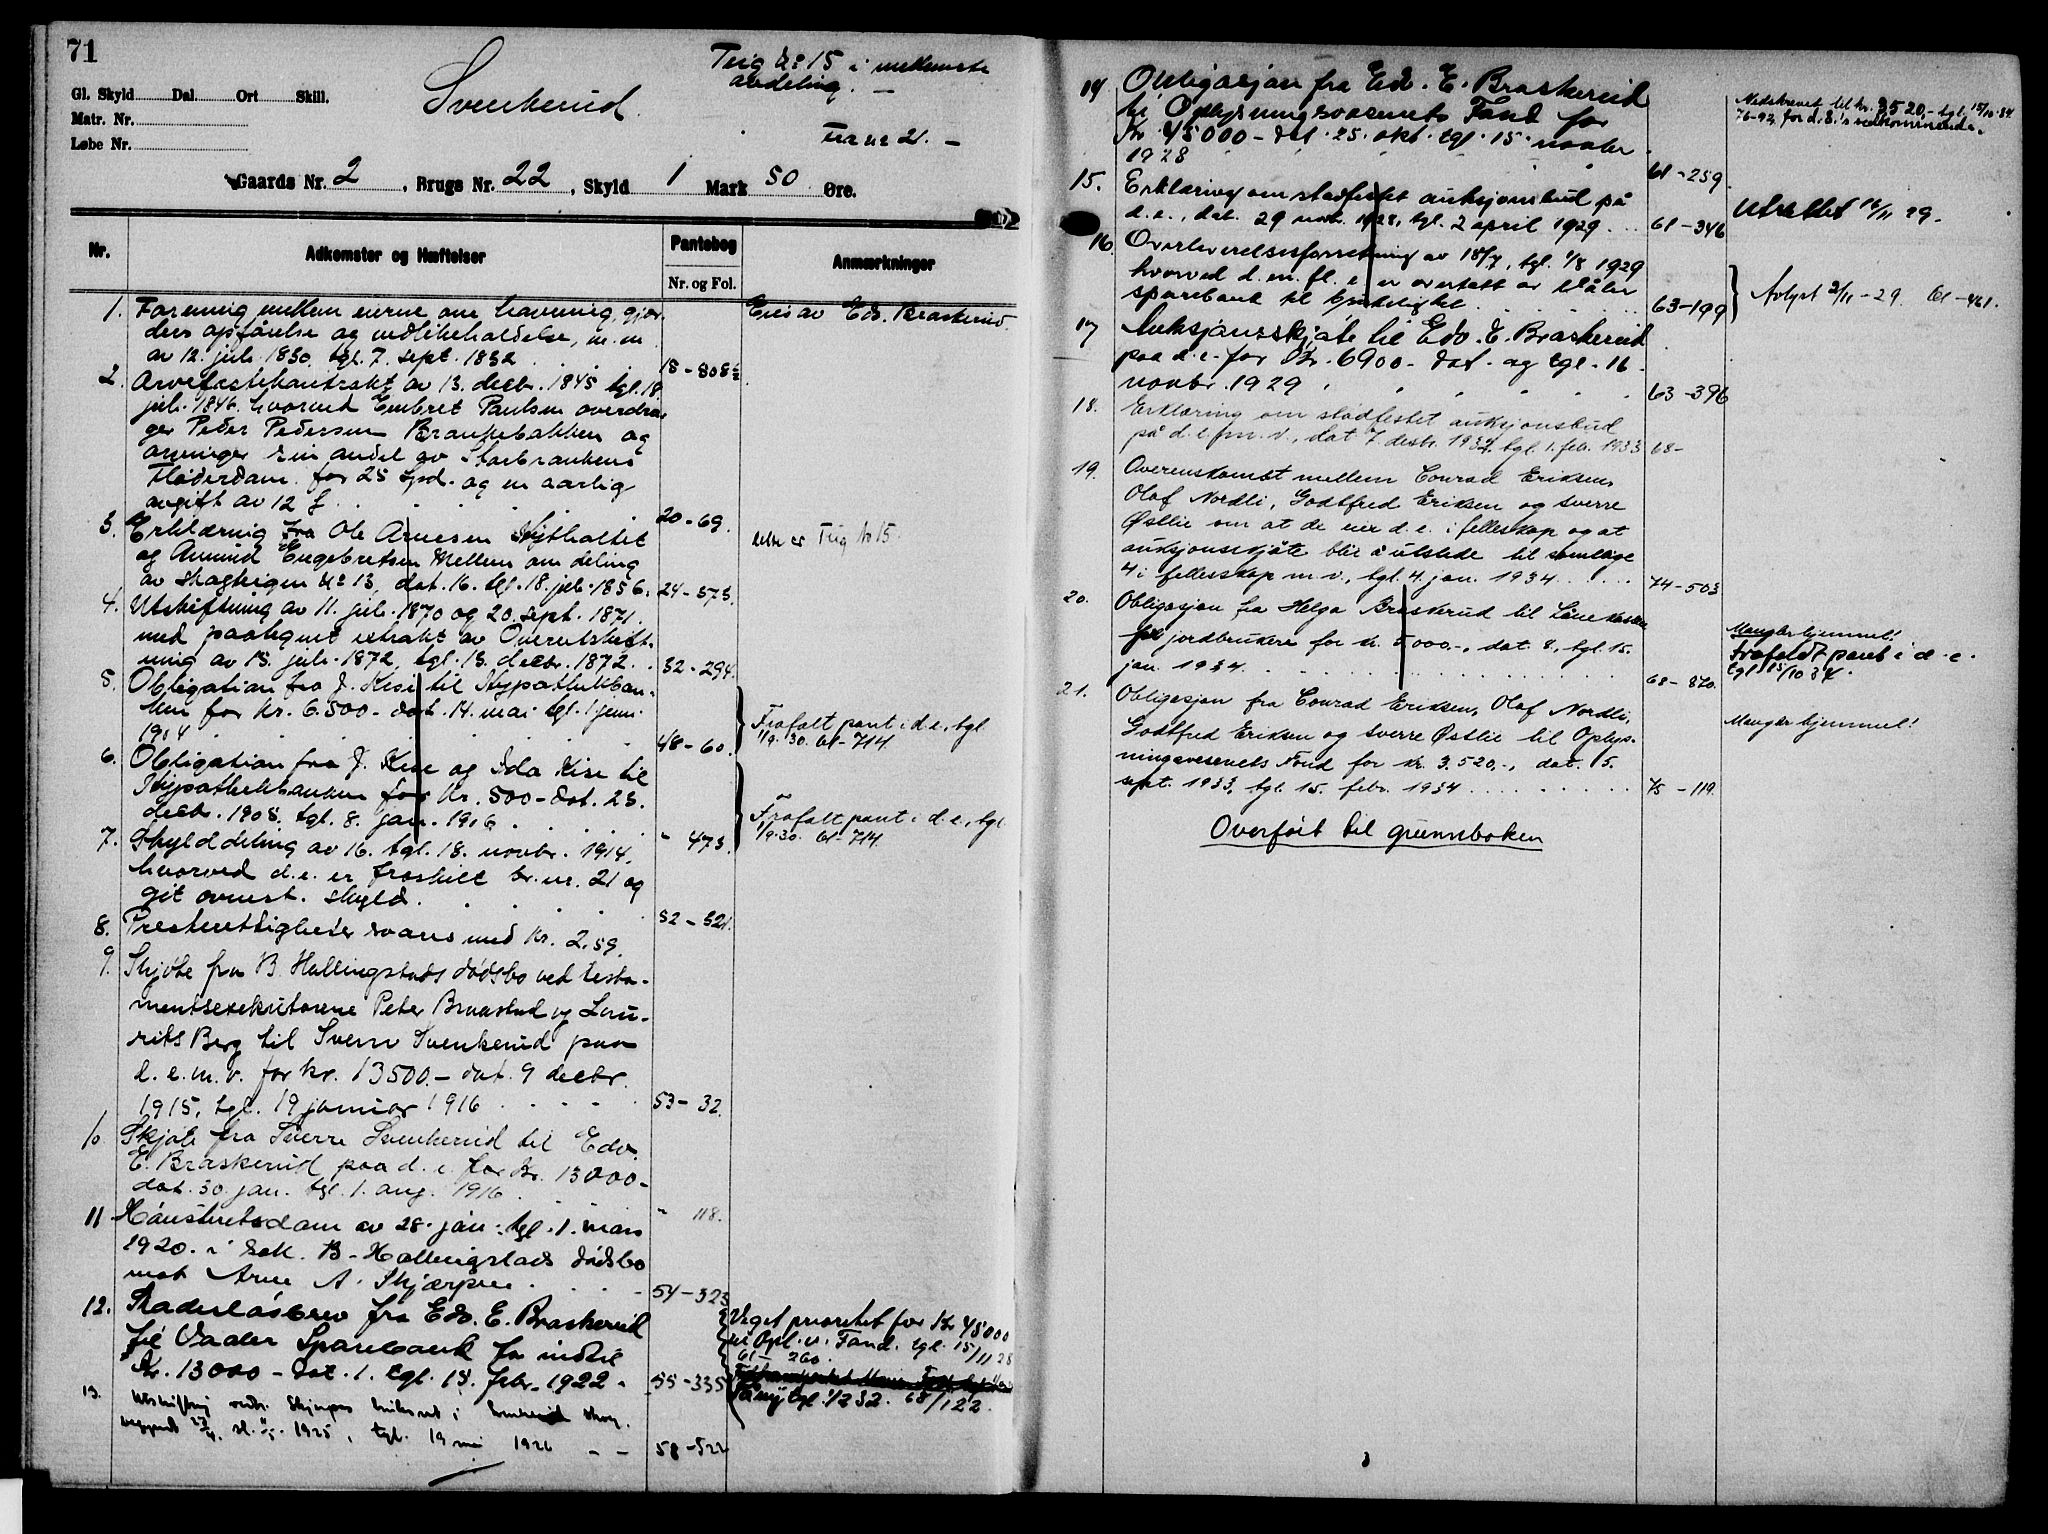 71
Gl. Skyld Dal. Ort Skill.
Matr. Nr.
Løbe Nr.
Svenkerud
Teig № 15 i
avdeling. —
Fra nr 21. —
Gaards Nr. 2, Brugs Nr. 22, Skyld 1 Mark 50 Øre.
Nr. Adkomster og Hæftelser Pantebog Anmærkninger
Nr. og Fol.
1. Forening mellem eierne om havning, gjær- Eies av Edv. Braskerud.
ders opførelse og vedlikeholdelse, m. m.
av 12. juli 1830, tgl. 7. sept. 1832 18-808½
2. Arvefæstekontrakt av 13. decbr. 1845 tgl. 18
juli 1846, hvorved Embret Paulsen overdra-
ger Peder Pedersen Brankebakken og
arvinger sin andel av Storbrankens
Fløderdam for 25 spd. og en aarlig
avgift av 12 ʃ. 20-69.
3. Erklæring fra Ole Arnesen
og Amund Engebretsen Mellem om deling dette er Teig № 15.
av skogteigen № 13, dat. 16. tgl. 18. juli 1856. 24-573.
4. Utskiftning av 11. juli 1870 og 20. sept. 1871
med paategnet extrakt av Overutskift-
ning av 15. juli 1872, tgl. 13. decbr. 1872. 32-294.
5. Obligation fra J. Kise til Hypothekban-
ken for Kr. 6.500- dat. 14. mai tgl. 1 juni
1904 48-60. Frafalt pant i d.e., tgl.
1/9. 30. 61-714.
6. Obligation fra J. Kise og Ida Kise til
Hypothekbanken for Kr. 500- dat. 23.
decbr. 1905. tgl. 8. jan. 1906 " 473. Frafalt pant i d.e., tgl.
1/9.30. 61-714.
7. Skylddeling av 16. tgl. 18. novbr. 1914,
hvorved d.e. er fraskilt br.nr. 21 og
git ovenst. skyld. 52-521.
8. Presterettigheter svares med Kr. 2,59.
9. Skjøte fra B. Hallingstads dødsbo ved testa-
mentseksekutorene Peter Braastad og Lau-
rits Berg til Sverre Svenkerud paa
d.e.m.v. for kr. 13500.- dat. 9 decbr.
1915, tgl. 19 januar 1916 53-32.
10 Skjøte fra Sverre Svenkerud til Edv.
E. Braskerud paa d.e. for Kr. 13000-
dat. 30. jan. tgl. 1. aug. 1916. " 118.
11 Høiesteretsdom av 28. jan. tgl. 1. mars
1920. i sak. B. Hallingstads dødsbo
mot Arne A. Skjærpen 54-323
12. Skadesløsbrev fra Edv. E. Braskerud
til Vaaler Sparebank for indtil
Kr. 13000- dat. 1. tgl. 15. febr. 1922 55-335
Veget prioritet for Kr 45000
til Opl. v. Fond. tgl. 15/11 28
61-260.
På ny tgl. 1/2 32. 68/122.
13. Utskiftning vedr. Skjærpes bruksret i skog.
1925, tgl. 19 mai 1926 58-522
14 Obligasjon fra Edv. E. Braskerud
til Oplysningsvæsenets Fond for
Kr. 45000- dat. 25. okt. tgl. 15. novbr
1928 61-259.
Nedskrevet til kr. 3520,- tgl. 15/10-34
76-92, for d.e.'s vedkommende.
15. Erklæring om stadfestet auksjonsbud på
d.e., dat. 29 nov. 1928, tgl. 2 april 1929 61-346 Utslettet 16/11 29.
16. Overleverelsesforretning av 18/7, tgl. 1/8 1929
hvorved d.e. m. fl. e. er overtatt av Våler
sparebank til brukelighet. 63-199 Avlyst 2/11-29. 61-461.
17 Auksjonsskjøte til Edv. E. Braskerud
paa d.e. for Kr. 6900- dat. og tgl. 16
novbr. 1929 63-396
18. Erklæring om stadfestet auksjonsbud
på d.e. m. v., dat. 7. desbr. 1932, tgl. 1. febr. 1933 68-
19. Overenskomst mellem Conrad Eriksen,
Olaf Nordli, Godtfred Eriksen og Sverre
Østlie om at de eier d.e. i felleskap og at
auksjonsskjøte blir å utstede til samtlige
4 i fellesskap m.v., tgl. 4. jan. 1934 74-503
20. Obligasjon fra Helga Braskerud til Lånekassen
for jordbrukere for kr. 5000.-, dat. 8, tgl. 15.
jan. 1934 68-870.
Mangler hjemmel!
Frafaldt pant i d.e.
tgl 15/10 34.
21. Obligasjon fra Conrad Eriksen, Olaf Nordli, Mangler hjemmel!
Godtfred Eriksen og Sverre Østlie til Oplys-
ningsvesenets Fond for kr. 3.520,-, dat. 5.
sept. 1933, tgl. 15. febr. 1934 75-119.
Overført til grunnboken